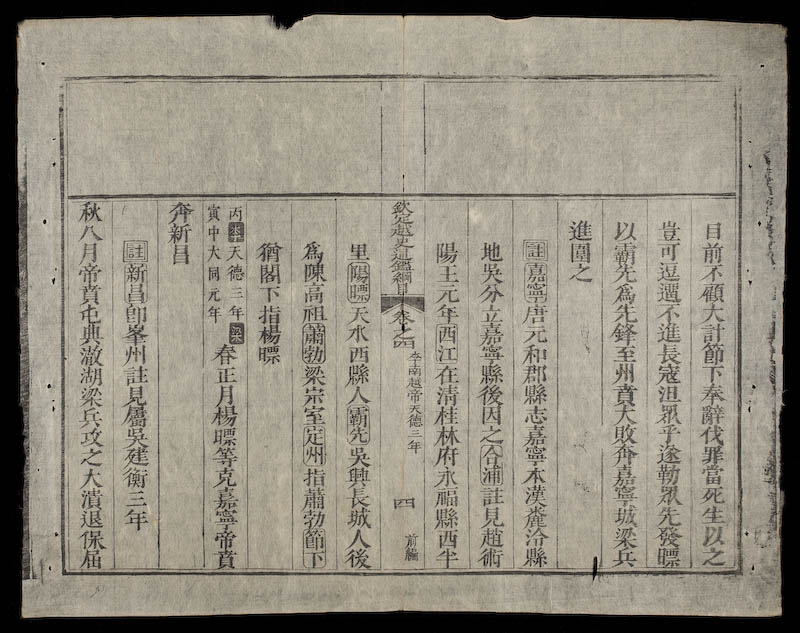 目前不顧大計節下奉辭伐罪當死生以之
豈可逗遛不進長寇沮眾乎遂勒眾先發㬓
以霸先爲先鋒至州賁大敗奔嘉寧城梁兵
進圍之
註嘉寧唐元和郡縣志嘉寧本漢麊泠縣
地吳分立嘉寧縣後因之合浦註見趙術
陽王元年西江在淸桂林府永福縣西半
欽定越史通鑑綱目 卷之四 李南越帝天德三年 四 前編
里楊㬓天水西縣人霸先吳興長城人後
爲陳高祖蕭勃梁宗室定州指蕭勃節下
猶閣下指楊㬓
丙寅李天德三年梁中大同元年春正月楊㬓等克嘉寧帝賁
奔新昌
註新昌卽峯州註見屬吳建衡三年
秋八月帝賁屯典澈湖梁兵攻之大潰退保屈